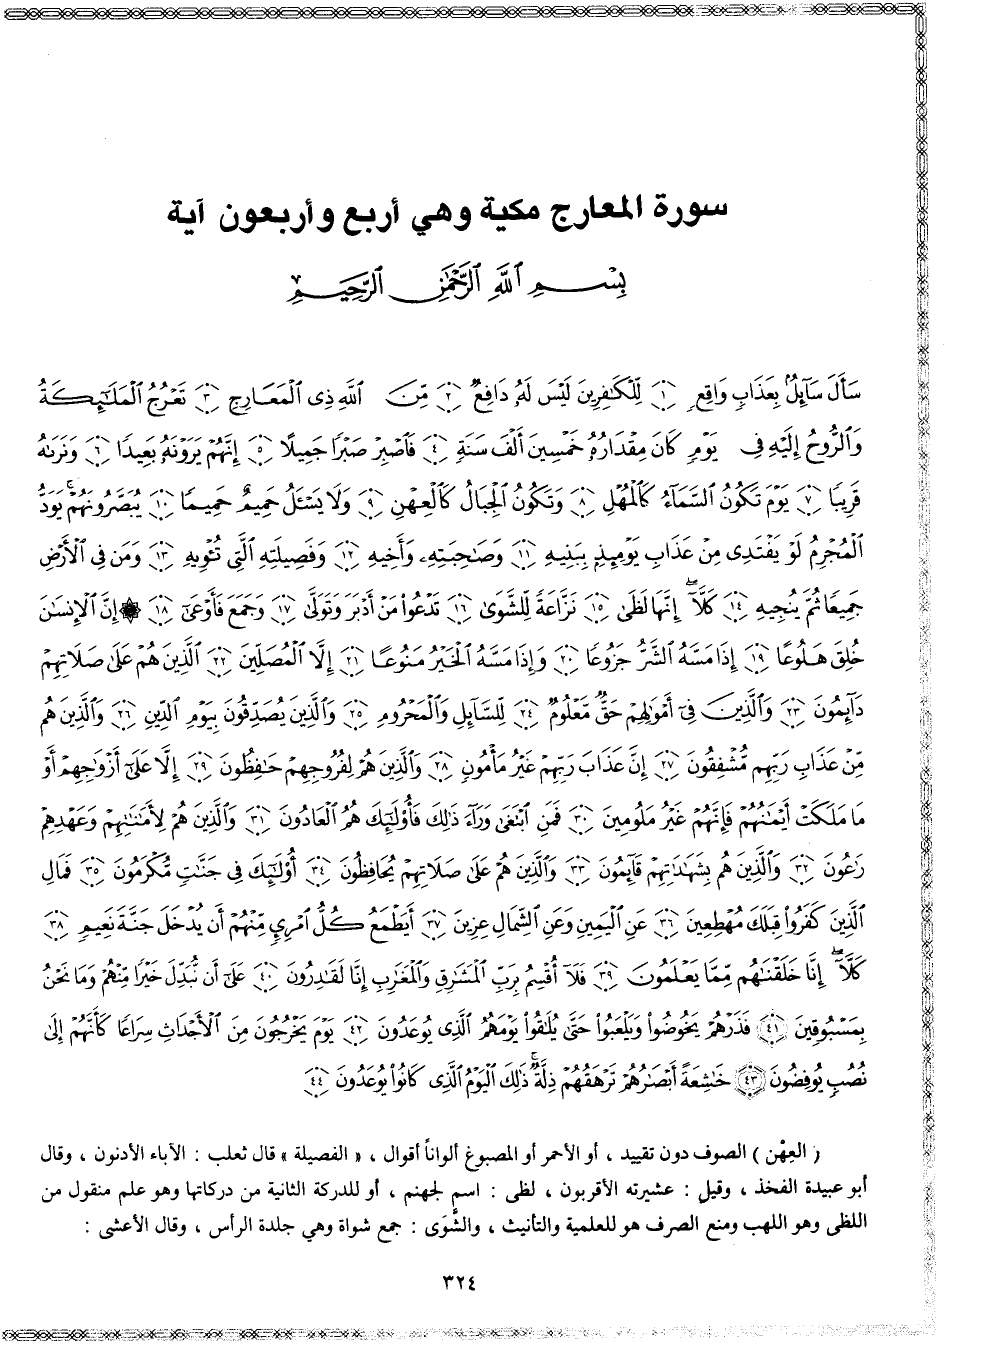 سورة المعارج مكية وهي أربع وأربعون آية
بِسْمِ ٱللَّهِ ٱلرَّحْمَٰنِ ٱلرَّحِيمِ
سَأَلَ سَآئِلٌۢ بِعَذَابٍ وَاقِعٍ ﴿١﴾ لِّلْكَٰفِرِينَ لَيْسَ لَهُۥ دَافِعٌ ﴿٢﴾ مِّنَ ٱللَّهِ ذِى ٱلْمَعَارِجِ ﴿٣﴾ تَعْرُجُ ٱلْمَلَٰٓئِكَةُ
وَٱلرُّوحُ إِلَيْهِ فِى يَوْمٍ كَانَ مِقْدَارُهُۥ خَمْسِينَ أَلْفَ سَنَةٍ ﴿٤﴾ فَٱصْبِرْ صَبْرًا جَمِيلًا ﴿٥﴾ إِنَّهُمْ يَرَوْنَهُۥ بَعِيدًا ﴿٦﴾ وَنَرَىٰهُ
قَرِيبًا ﴿٧﴾ يَوْمَ تَكُونُ ٱلسَّمَآءُ كَٱلْمُهْلِ ﴿٨﴾ وَتَكُونُ ٱلْجِبَالُ كَٱلْعِهْنِ ﴿٩﴾ وَلَا يَسْـَٔلُ حَمِيمٌ حَمِيمًا ﴿١٠﴾ يُبَصَّرُونَهُمْ ۚ يَوَدُّ
ٱلْمُجْرِمُ لَوْ يَفْتَدِى مِنْ عَذَابِ يَوْمِئِذٍۭ بِبَنِيهِ ﴿١١﴾ وَصَٰحِبَتِهِۦ وَأَخِيهِ ﴿١٢﴾ وَفَصِيلَتِهِ ٱلَّتِى تُـْٔوِيهِ ﴿١٣﴾ وَمَن فِى ٱلْأَرْضِ
جَمِيعًا ثُمَّ يُنجِيهِ ﴿١٤﴾ كَلَّآ ۖ إِنَّهَا لَظَىٰ ﴿١٥﴾ نَزَّاعَةً لِّلشَّوَىٰ ﴿١٦﴾ تَدْعُوا۟ مَنْ أَدْبَرَ وَتَوَلَّىٰ ﴿١٧﴾ وَجَمَعَ فَأَوْعَىٰٓ ﴿١٨﴾ ۞ إِنَّ ٱلْإِنسَٰنَ
خُلِقَ هَلُوعًا ﴿١٩﴾ إِذَا مَسَّهُ ٱلشَّرُّ جَزُوعًا ﴿٢٠﴾ وَإِذَا مَسَّهُ ٱلْخَيْرُ مَنُوعًا ﴿٢١﴾ إِلَّا ٱلْمُصَلِّينَ ﴿٢٢﴾ ٱلَّذِينَ هُمْ عَلَىٰ صَلَاتِهِمْ
دَآئِمُونَ ﴿٢٣﴾ وَٱلَّذِينَ فِىٓ أَمْوَٰلِهِمْ حَقٌّ مَّعْلُومٌ ﴿٢٤﴾ لِّلسَّآئِلِ وَٱلْمَحْرُومِ ﴿٢٥﴾ وَٱلَّذِينَ يُصَدِّقُونَ بِيَوْمِ ٱلدِّينِ ﴿٢٦﴾ وَٱلَّذِينَ هُم
مِّنْ عَذَابِ رَبِّهِم مُّشْفِقُونَ ﴿٢٧﴾ إِنَّ عَذَابَ رَبِّهِمْ غَيْرُ مَأْمُونٍ ﴿٢٨﴾ وَٱلَّذِينَ هُمْ لِفُرُوجِهِمْ حَٰفِظُونَ ﴿٢٩﴾ إِلَّا عَلَىٰٓ أَزْوَٰجِهِمْ أَوْ
مَا مَلَكَتْ أَيْمَٰنُهُمْ فَإِنَّهُمْ غَيْرُ مَلُومِينَ ﴿٣٠﴾ فَمَنِ ٱبْتَغَىٰ وَرَآءَ ذَٰلِكَ فَأُو۟لَٰٓئِكَ هُمُ ٱلْعَادُونَ ﴿٣١﴾ وَٱلَّذِينَ هُمْ لِأَمَٰنَٰتِهِمْ وَعَهْدِهِمْ
رَٰعُونَ ﴿٣٢﴾ وَٱلَّذِينَ هُم بِشَهَٰدَٰتِهِمْ قَآئِمُونَ ﴿٣٣﴾ وَٱلَّذِينَ هُمْ عَلَىٰ صَلَاتِهِمْ يُحَافِظُونَ ﴿٣٤﴾ أُو۟لَٰٓئِكَ فِى جَنَّٰتٍ مُّكْرَمُونَ ﴿٣٥﴾ فَمَالِ
ٱلَّذِينَ كَفَرُوا۟ قِبَلَكَ مُهْطِعِينَ ﴿٣٦﴾ عَنِ ٱلْيَمِينِ وَعَنِ ٱلشِّمَالِ عِزِينَ ﴿٣٧﴾ أَيَطْمَعُ كُلُّ ٱمْرِئٍ مِّنْهُمْ أَن يُدْخَلَ جَنَّةَ نَعِيمٍ ﴿٣٨﴾
كَلَّآ ۖ إِنَّا خَلَقْنَٰهُم مِّمَّا يَعْلَمُونَ ﴿٣٩﴾ فَلَآ أُقْسِمُ بِرَبِّ ٱلْمَشَٰرِقِ وَٱلْمَغَٰرِبِ إِنَّا لَقَٰدِرُونَ ﴿٤٠﴾ عَلَىٰٓ أَن نُّبَدِّلَ خَيْرًا مِّنْهُمْ وَمَا نَحْنُ
بِمَسْبُوقِينَ ﴿٤١﴾ فَذَرْهُمْ يَخُوضُوا۟ وَيَلْعَبُوا۟ حَتَّىٰ يُلَٰقُوا۟ يَوْمَهُمُ ٱلَّذِى يُوعَدُونَ ﴿٤٢﴾ يَوْمَ يَخْرُجُونَ مِنَ ٱلْأَجْدَاثِ سِرَاعًا كَأَنَّهُمْ إِلَىٰ
نُصُبٍ يُوفِضُونَ ﴿٤٣﴾ خَٰشِعَةً أَبْصَٰرُهُمْ تَرْهَقُهُمْ ذِلَّةٌ ۚ ذَٰلِكَ ٱلْيَوْمُ ٱلَّذِى كَانُوا۟ يُوعَدُونَ ﴿٤٤﴾
( العِهْن ) الصوف دون تقييد ، أو الأحمر أو المصبوغ ألواناً أقوال ، « الفصيلة » قال ثعلب : الآباء الأدنون ، وقال
أبو عبيدة الفخذ ، وقيل : عشيرته الأقربون ، لظى : اسم لجهنم ، أو للدركة الثانية من دركاتها وهو علم منقول من
اللظى وهو اللهب ومنع الصرف هو للعلمية والتأنيث ، والشَّوَى : جمع شواة وهي جلدة الرأس ، وقال الأعشى :
٣٢٤